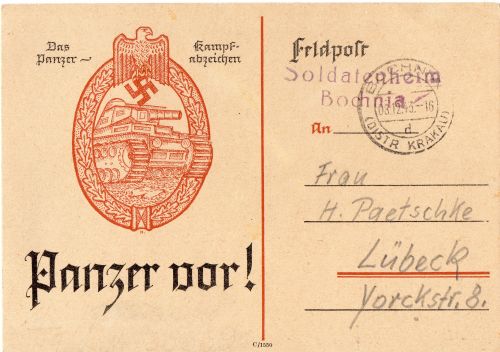 Das Panzer-
Kampf-
abzeichen
Panzer vor!
Feldpost
Soldatenheim
Bochnia
BOCHNIA
03.12.43.-16
d
(DISTR. KRAKAU)
An
Frau
H. Paetschke
Lübeck
Yorckstr. 8.
C/1550